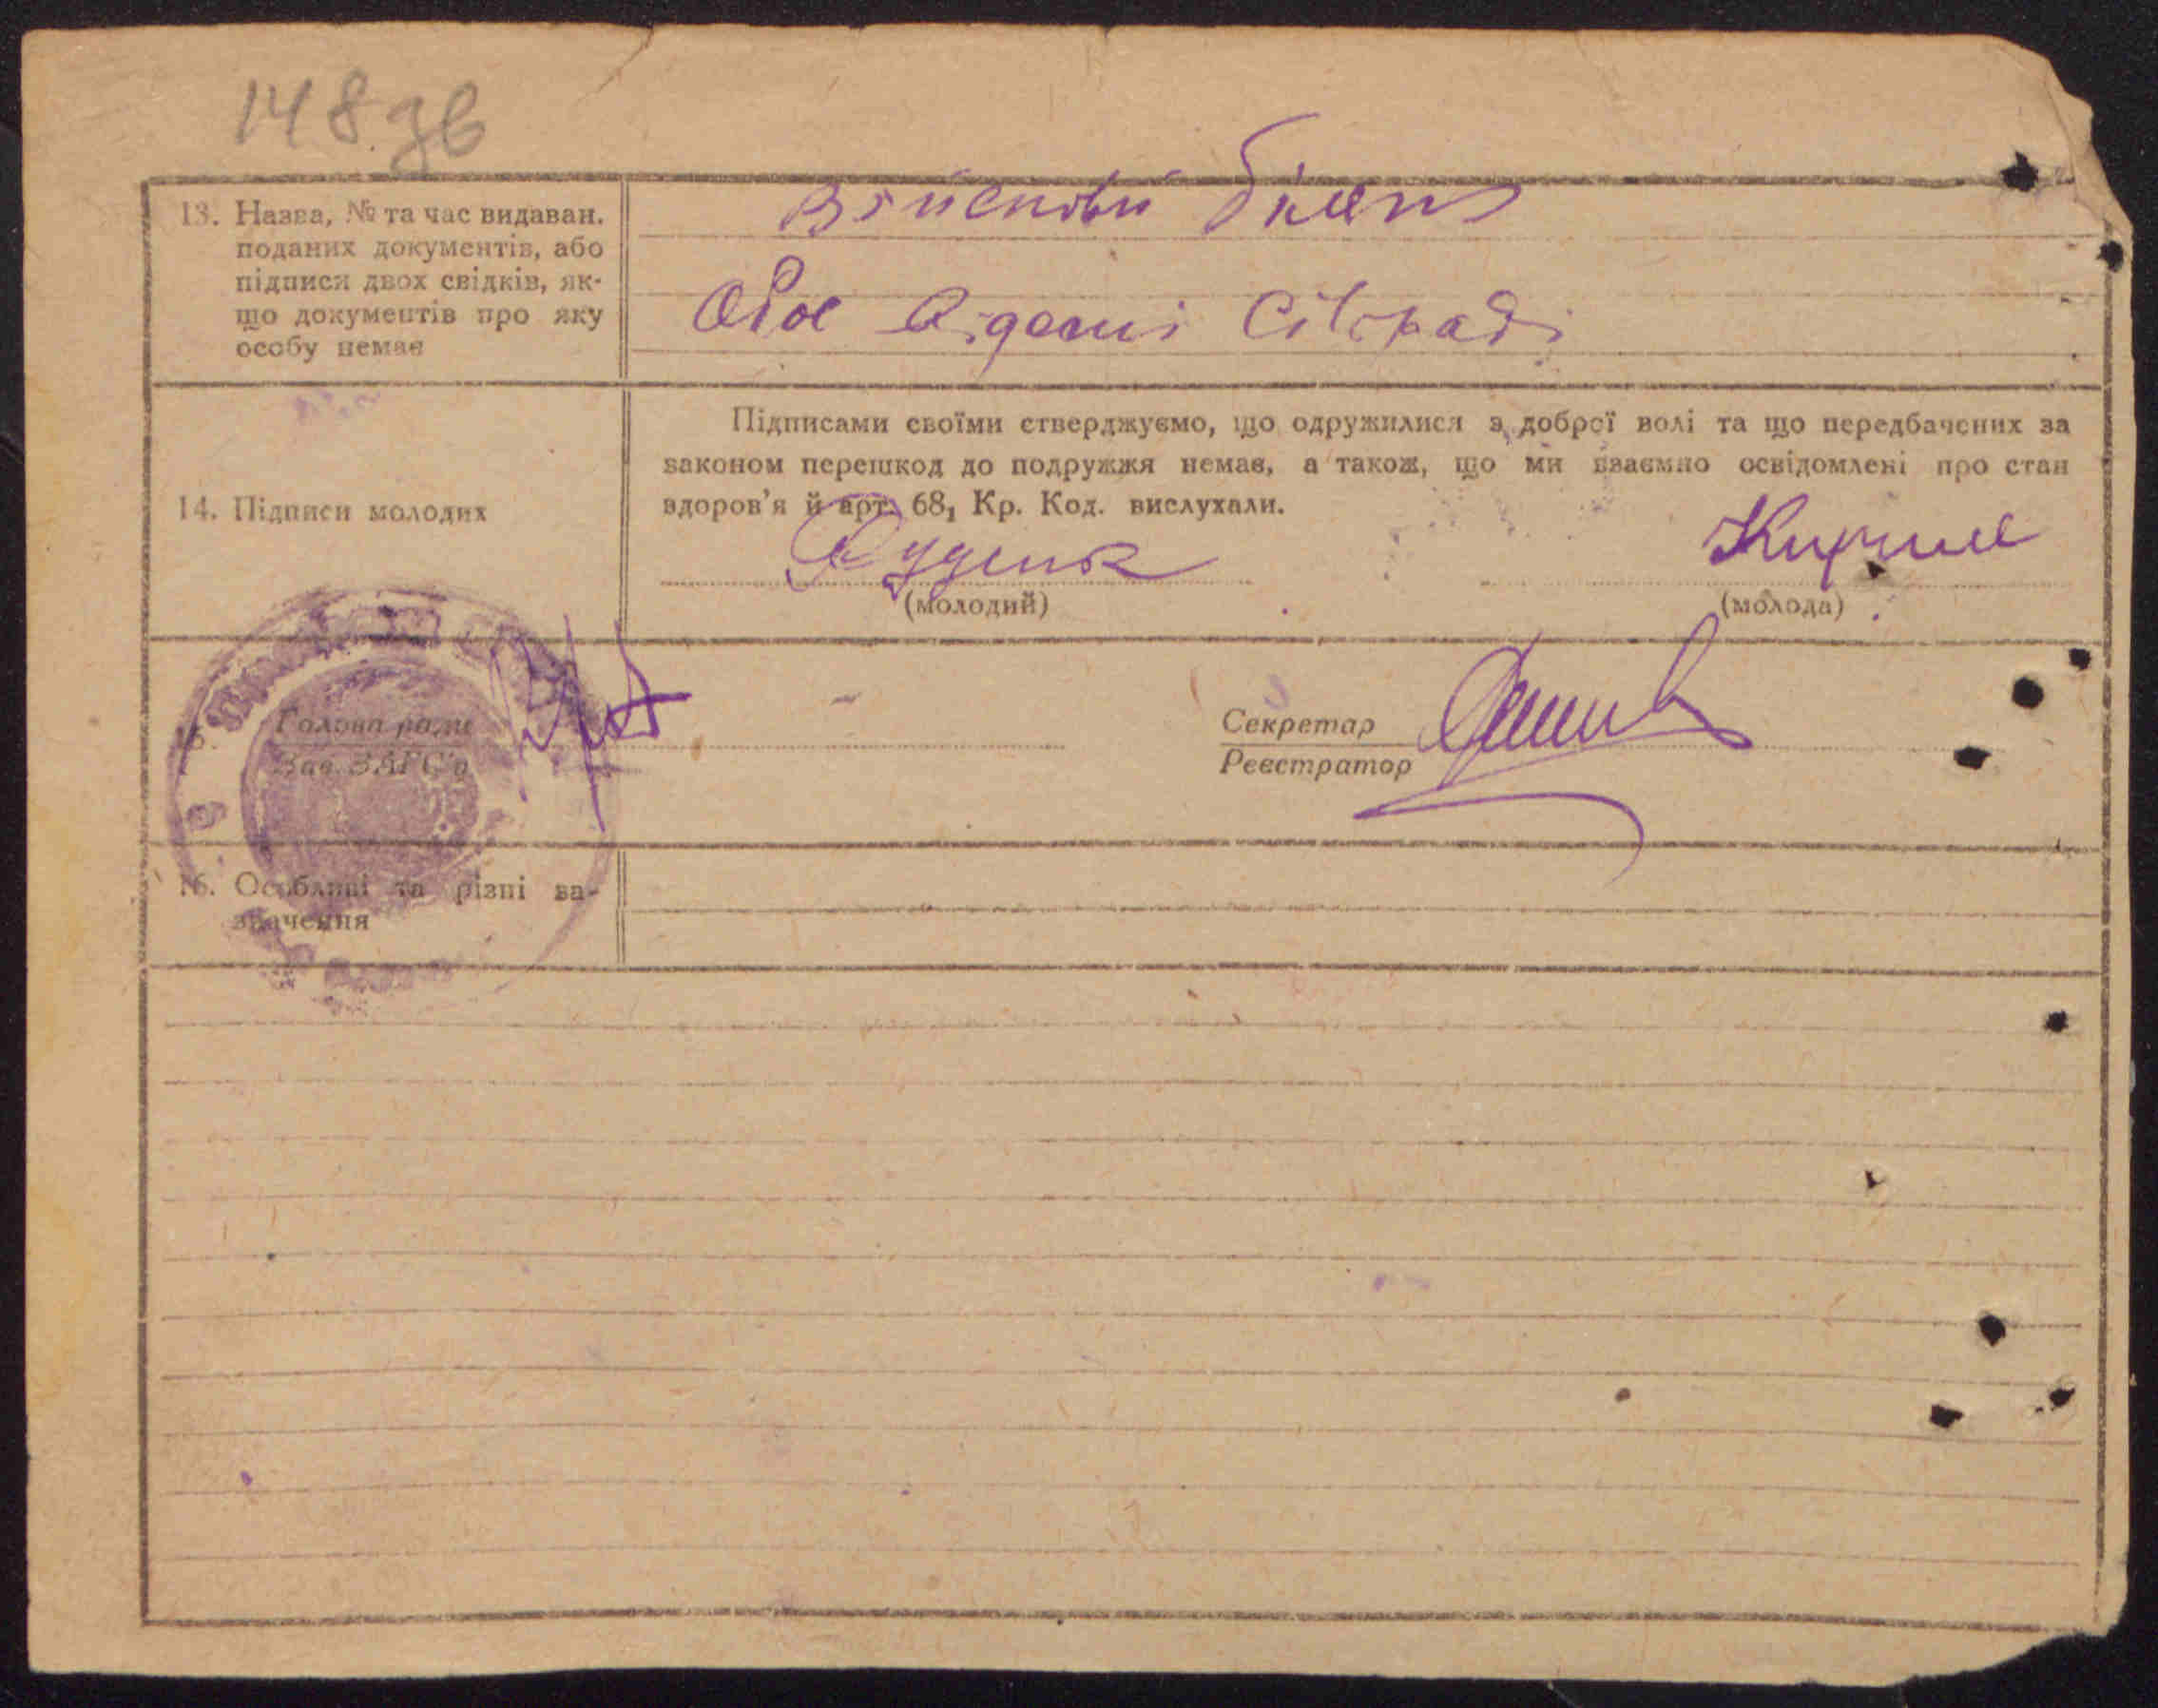 148 зв
13. Назва, № та час видаван.
поданих документів, або
підписи двох свідків, як-
що документів про яку
особу немає
Військовий білет
Обоє відомі Сільраді
14. Підписи молодих
Підписами своїми стверджуємо, що одружилися з доброї волі та що передбачених за
законом перешкод до подружжя немає, а також, що ми взаємно освідомлені про стан
здоров'я й арт. 68₁ Кр. Код. вислухали.
(молодий)
(молода)
Голова ради
Зав. ЗАГС'у
Секретар
Реєстратор
16. Особливі та різні за-
значення